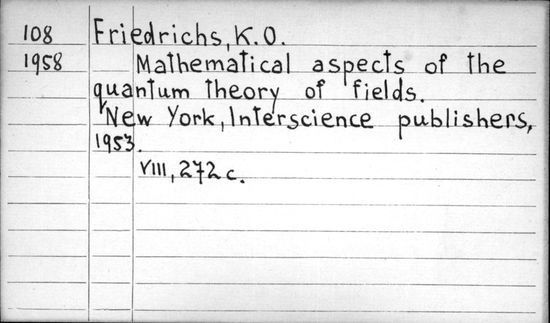 108 Friedrichs, K.O.
1958 Mathematical aspects of the
quantum theory of fields.
New York, Interscience publishers,
1953.
VIII, 272 c.